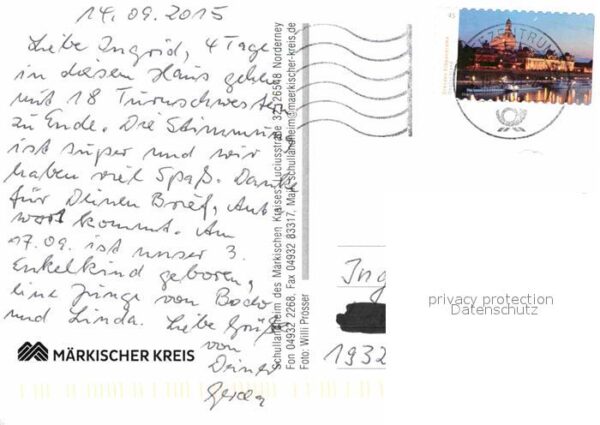 14.09.2015
Liebe Ingrid, 4 Tage
in diesem Haus gehen
mit 18 Turnschwestern
zu Ende. Die Stimmung
ist super und wir
haben viel Spaß. Danke
für Deinen Brief, Ant
wort kommt. Am
17.09. ist unser 3.
Enkelkind geboren,
eine Junge von Bodo
und Linda. Liebe Grüße
von
Deiner
Gerda
MÄRKISCHER KREIS
Schullandheim des Märkischen Kreises, Luciusstraße 32, 26548 Norderney
Fon 04932 2268, Fax 04932 83317, Mail: schullandheim@maerkischer-kreis.de
Foto: Willi Prosser
45
ZENTRUM
Ing
1932
privacy protection
Datenschutz